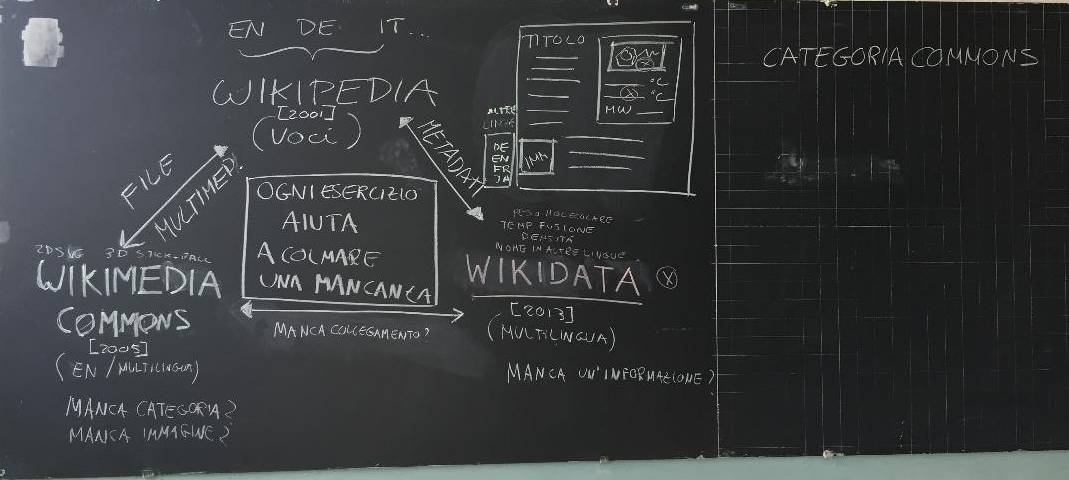 EN DE IT...
WIKIPEDIA
[2001]
(VOCI)
FILE
MULTIMED.
METADATI
TITOLO
°C
°C
MW
ALTRE
LINGUE
DE
EN
FR
JA
IMM
CATEGORIA COMMONS
OGNI ESERCIZIO
AIUTA
A COLMARE
UNA MANCANZA
2D SVG 3D STICK-BALL
WIKIMEDIA
COMMONS
[2005]
(EN/MULTILINGUA)
MANCA CATEGORIA?
MANCA IMMAGINE?
MANCA COLLEGAMENTO?
PESO MOLECOLARE
TEMP FUSIONE
DENSITÀ
NOME IN ALTRE LINGUE
WIKIDATA
[2013]
(MULTILINGUA)
MANCA UN'INFORMAZIONE?